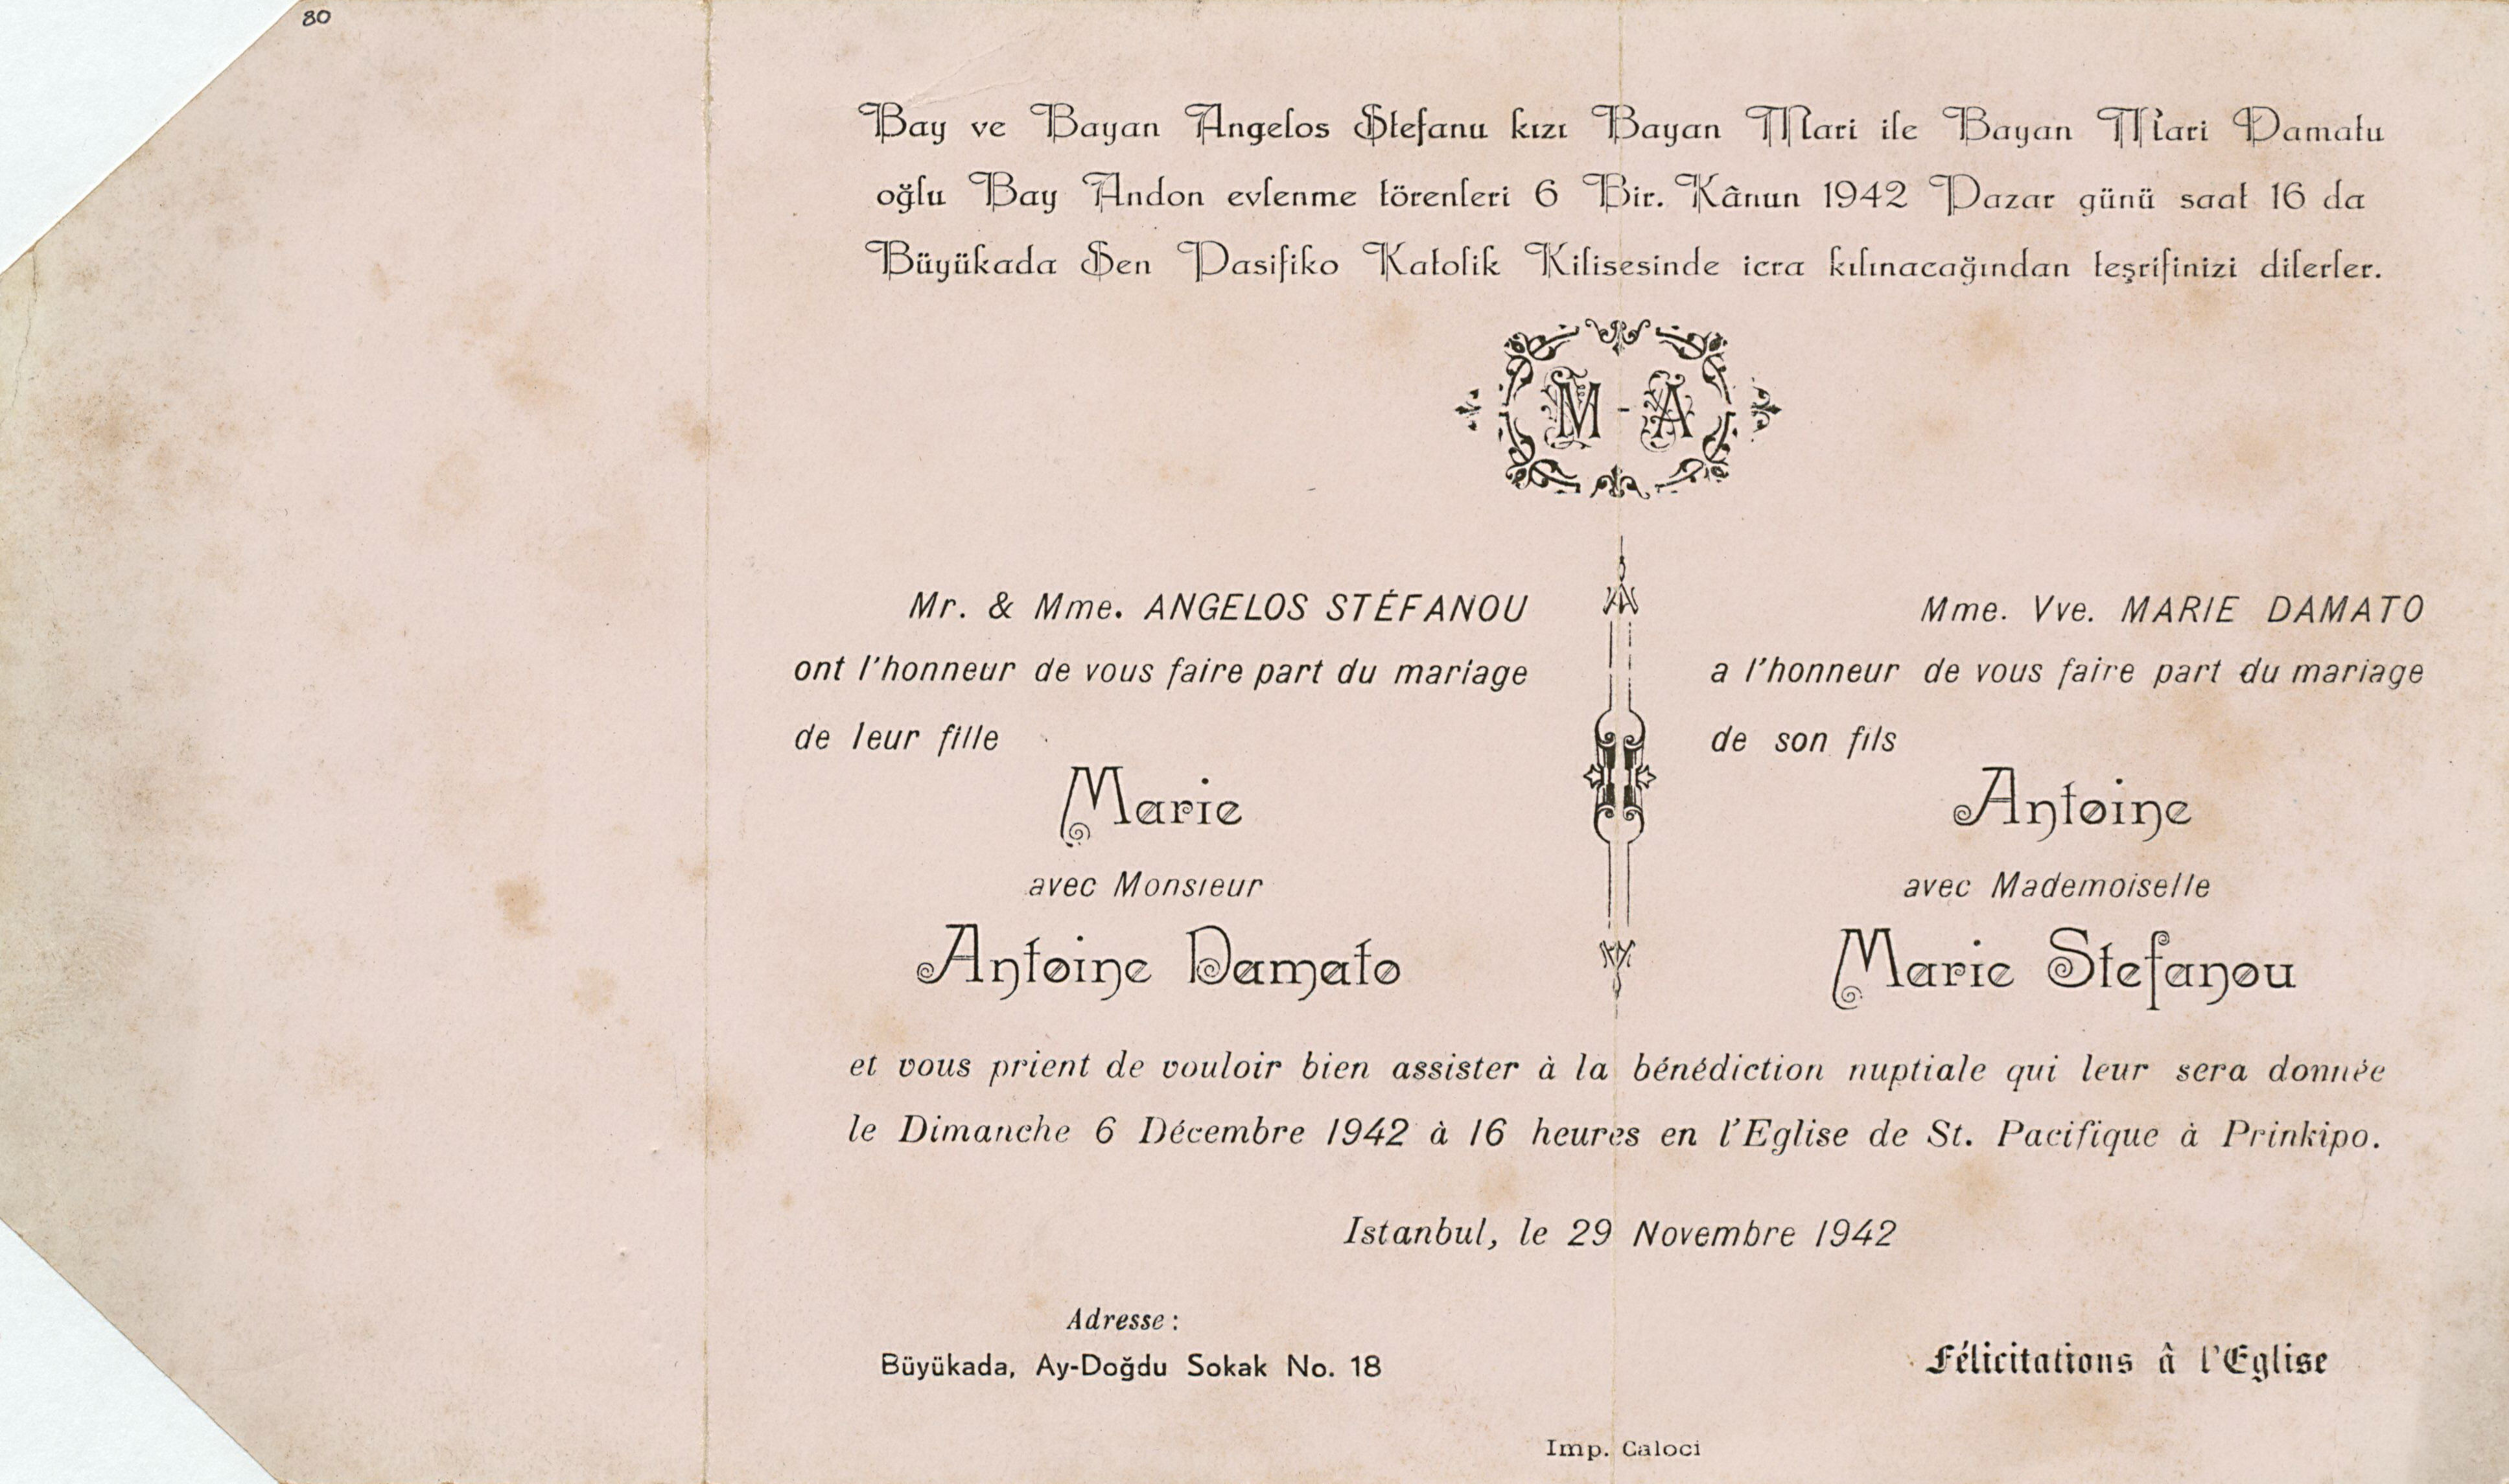 80
Bay ve Bayan Angelos Stefanu kızı Bayan Mari ile Bayan Mari Damatu
oğlu Bay Andon evlenme törenleri 6 Bir. Kânun 1942 Pazar günü saat 16 da
Büyükada Sen Pasifiko Katolik Kilisesinde icra kılınacağından teşrifinizi dilerler.
M - A
Mr. & Mme. ANGELOS STÉFANOU
ont l'honneur de vous faire part du mariage
de leur fille
Marie
avec Monsieur
Antoine Damato
Mme. Vve. MARIE DAMATO
a l'honneur de vous faire part du mariage
de son fils
Antoine
avec Mademoiselle
Marie Stefanou
et vous prient de vouloir bien assister à la bénédiction nuptiale qui leur sera donnée
le Dimanche 6 Décembre 1942 à 16 heures en l'Eglise de St. Pacifique à Prinkipo.
Istanbul, le 29 Novembre 1942
Adresse :
Büyükada, Ay-Doğdu Sokak No. 18
Félicitations â l'Eglise
Imp. Caloci